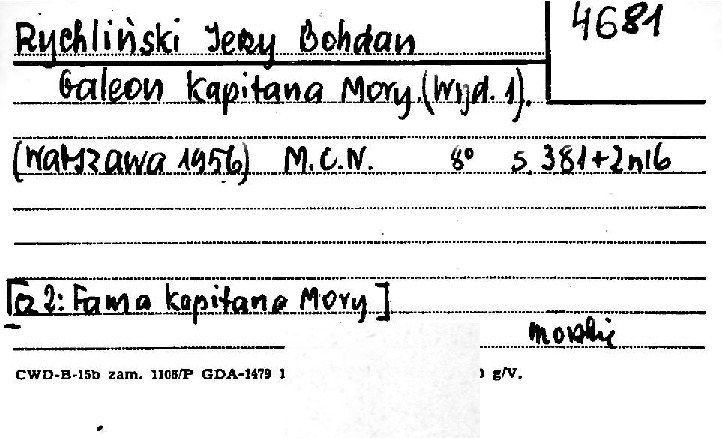 4681
Rychliński Jerzy Bohdan
Galeon Kapitana Mory. (Wyd. 1).
(Warszawa 1956) M.C.N. 8° s. 381+2nlb
2: Fama kapitana Mory]
morskie
CWD-B-15b zam. 1105/P GDA-1479 1 g/V.